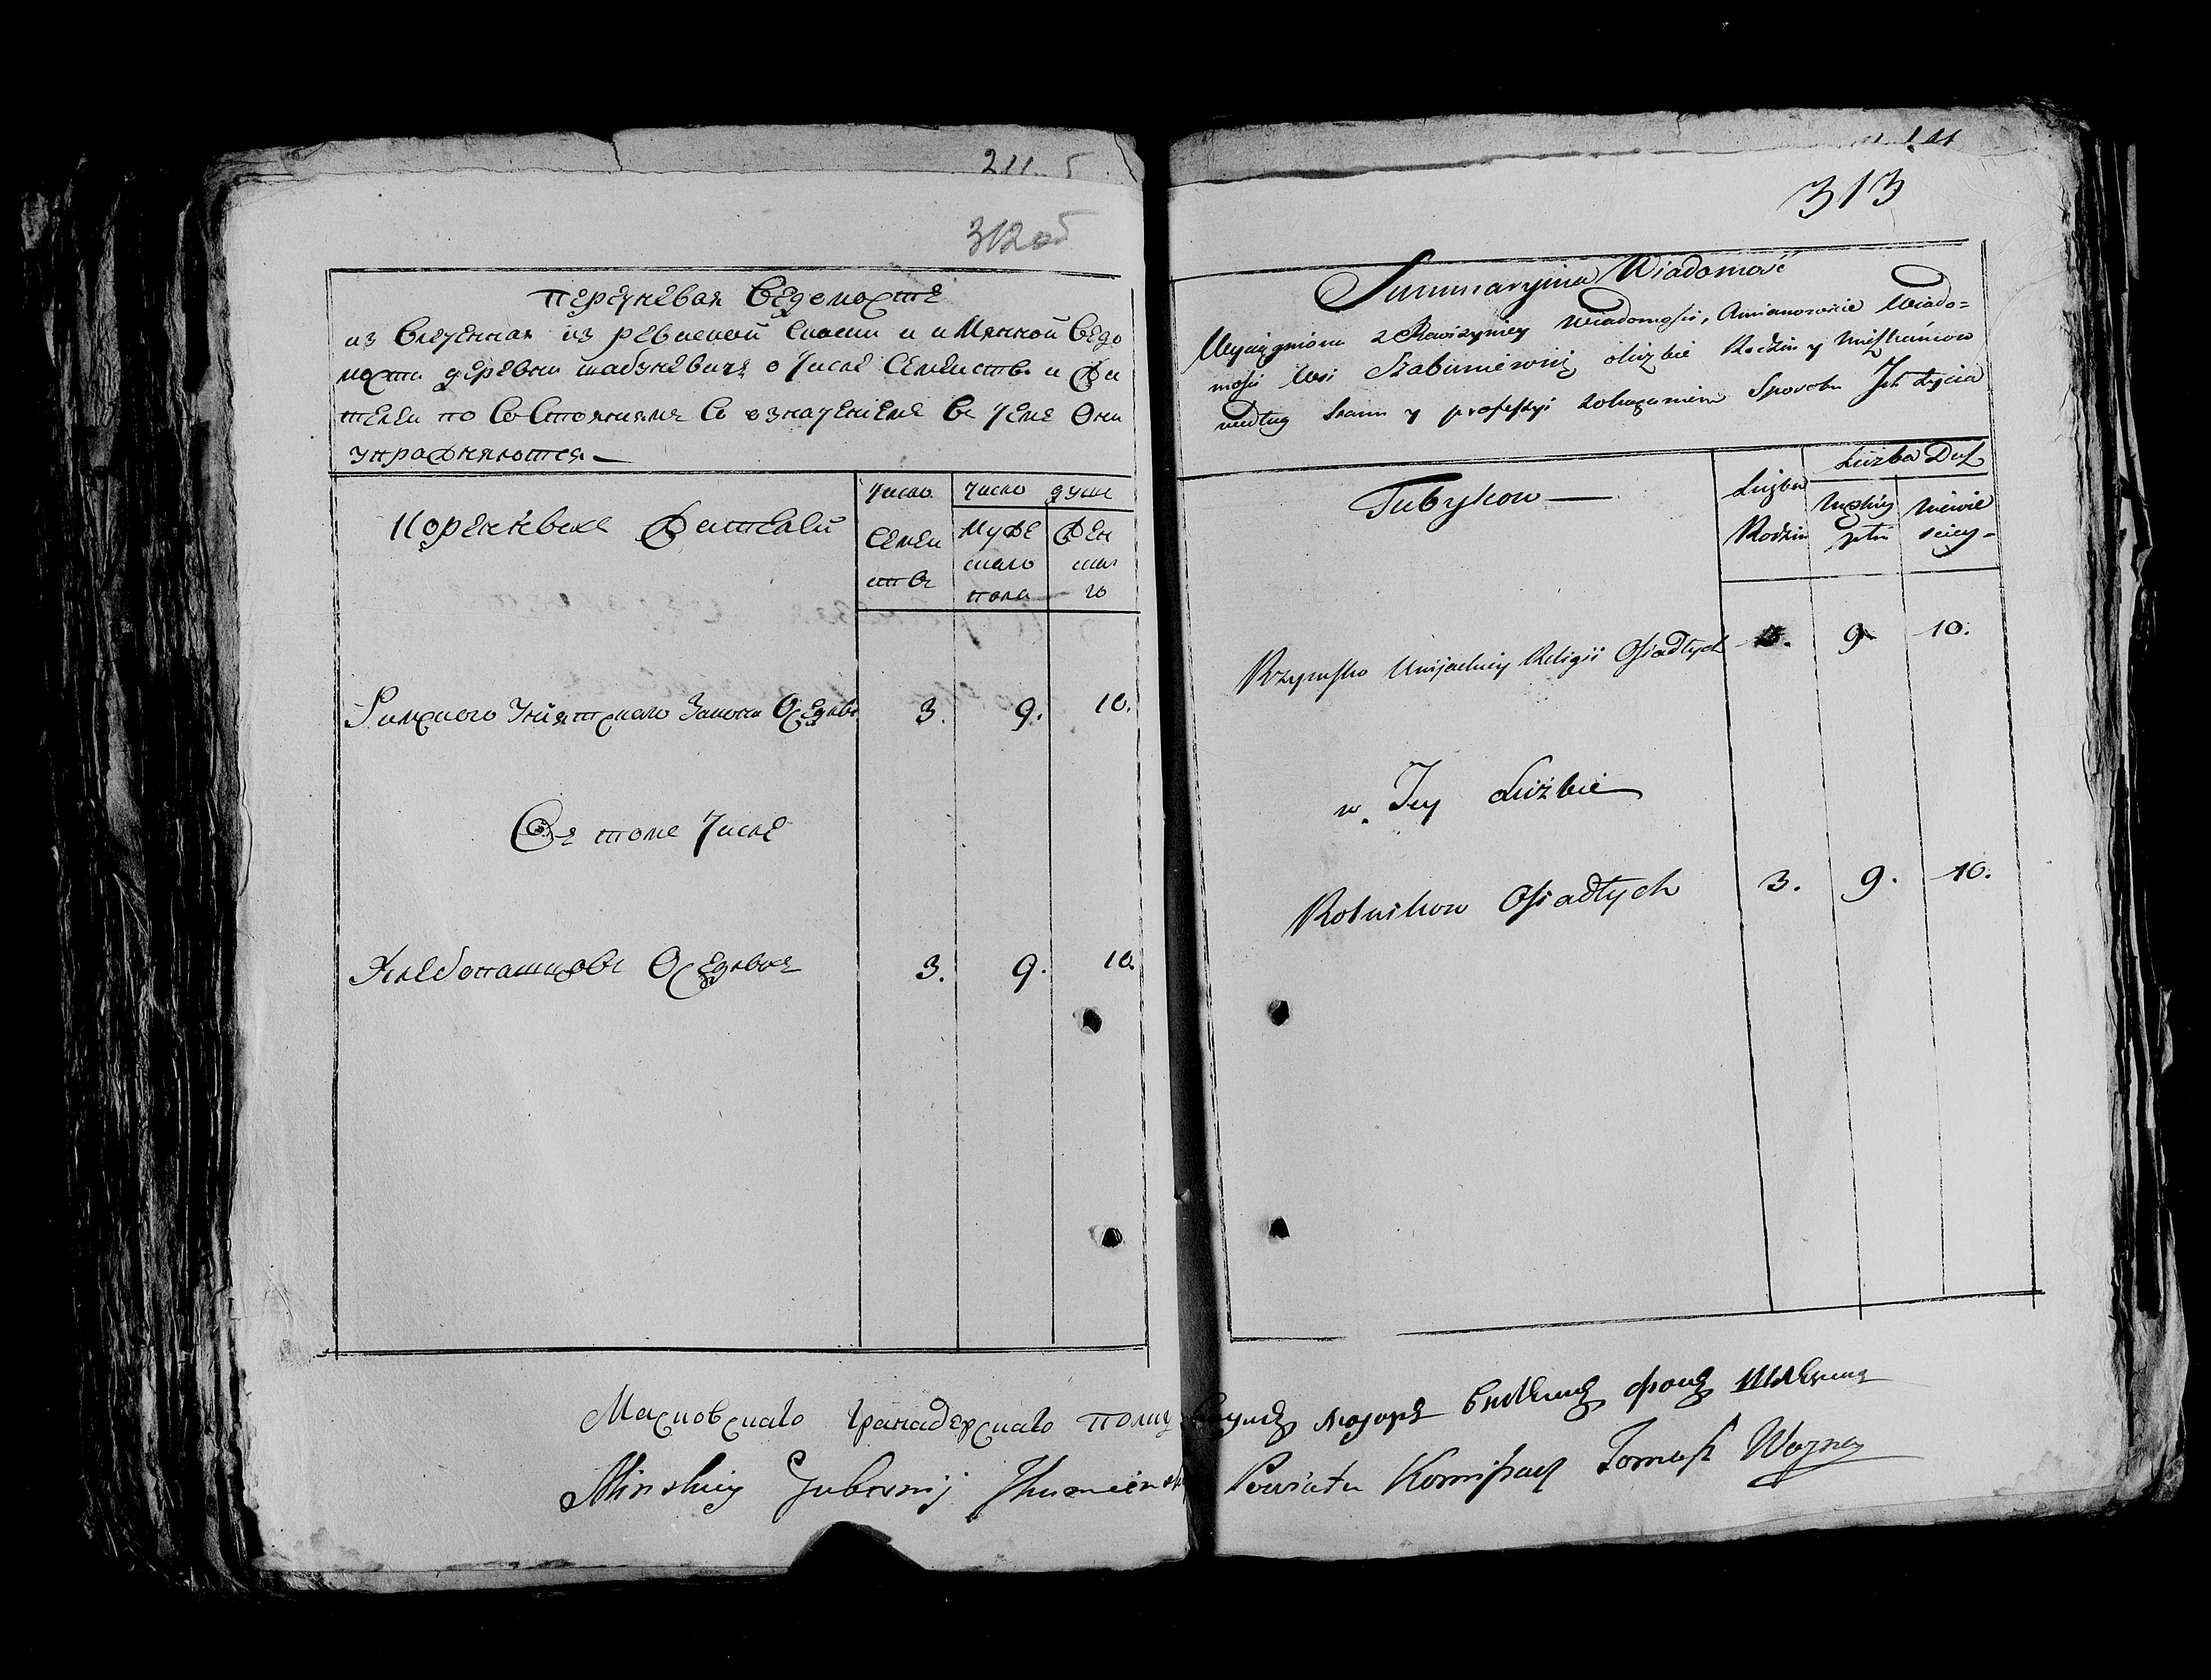 312об
Перечневая Ведомость
из влеченная из ревиской скаски и имянной ведо
мости деревни шабуневичь о числе Семеиствъ и Жи
телеи по Состояниямъ Со означениемъ въ чемъ Они
упражняются —
Кореннывхъ Жителей
Число Семеи ствъ
Число душъ
Мужескаго пола
Женскаго
Римскаго Униятскаго Закона Оседлы 3. 9. 10.
Въ томъ Числе
Хлебопашцовъ Оседлыя 3. 9. 10.
313
Summaryina Wiadomość
Wyciągniona z Rewizyiney Wiadomości, Amianowicie Wiado=
mości Wsi Szabuniewicz oliczbie Rodzin y Mieszkańcow
według Stanu y professyi Sposobu Ich życia
Tubyłcow —
Liczba Rodzin
Liczba Dusz
Męskiey płci
Niewie sciey -
Rzymsko Unijackiey Religii Osiadłych 3. 9. 10.
w Tey Liczbie
Rolnikow Osiadłych 3. 9. 10.
Московскаго гранадерскаго полку Маіоръ фонъ
Minskiey Gubernij Ihumieńsk Powiatu Komisarz Tomasz Wazny